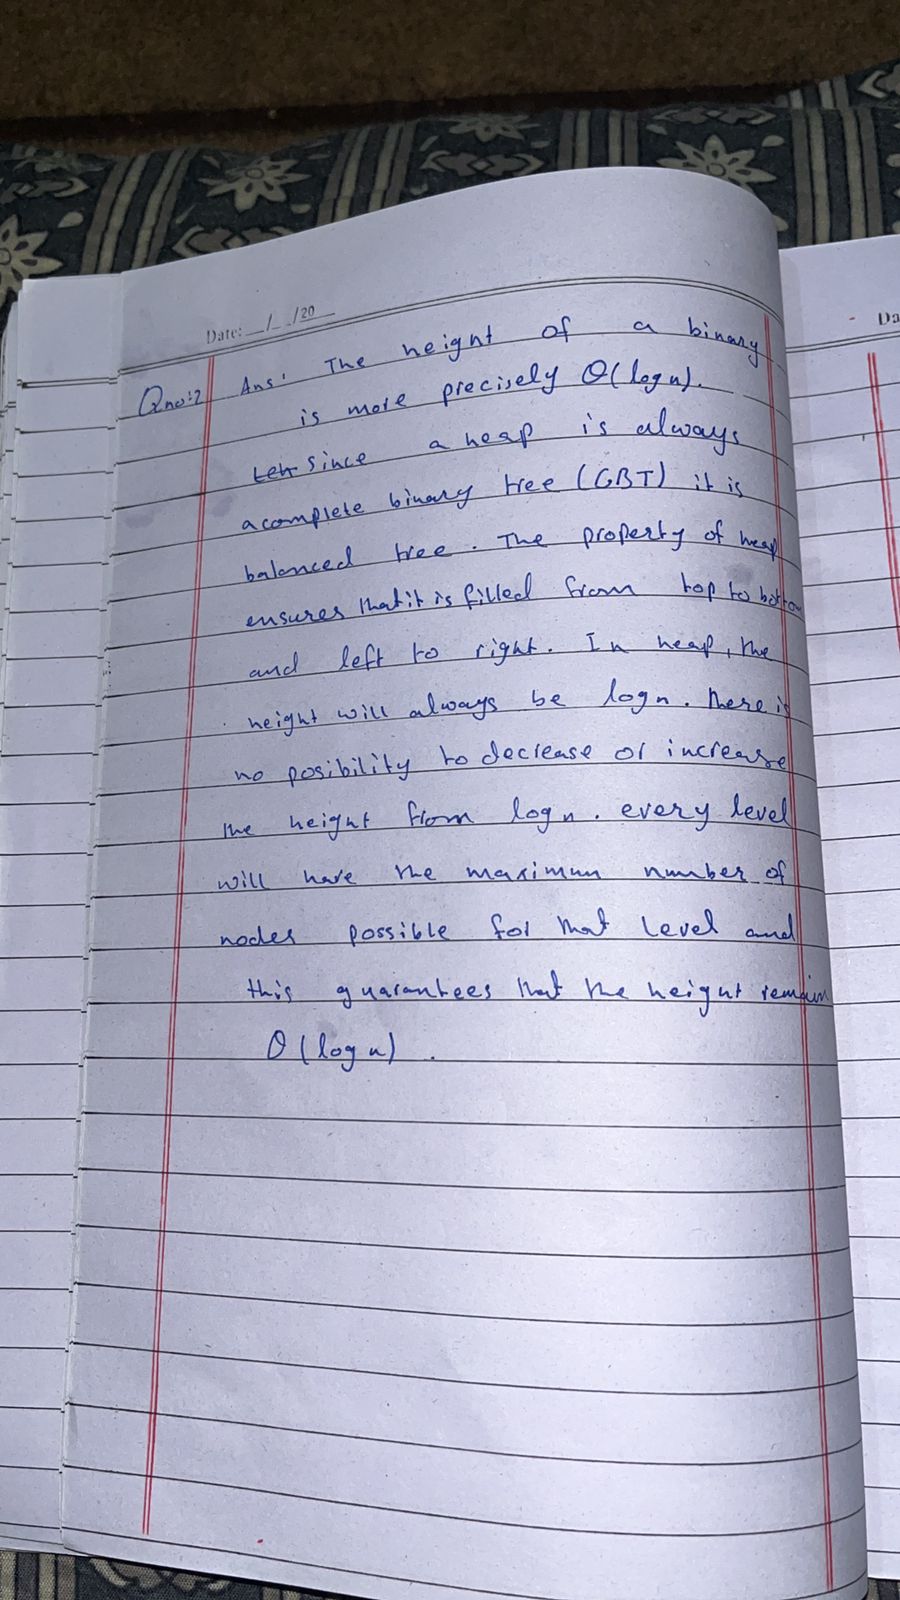 Date: __/__/20__
Da
Qno:2 Ans: The height of a binary
is more precisely θ(log n).
since a heap is always
a complete binary tree (CBT) it is
balanced tree. The property of heap
ensures that it is filled from top to bottom
and left to right. In heap, the
height will always be log n. there is
no posibility to decrease or increase
the height from log n. every level
will have the maximum number of
nodes possible for that level and
this guarantees that the height remain
θ(log n).